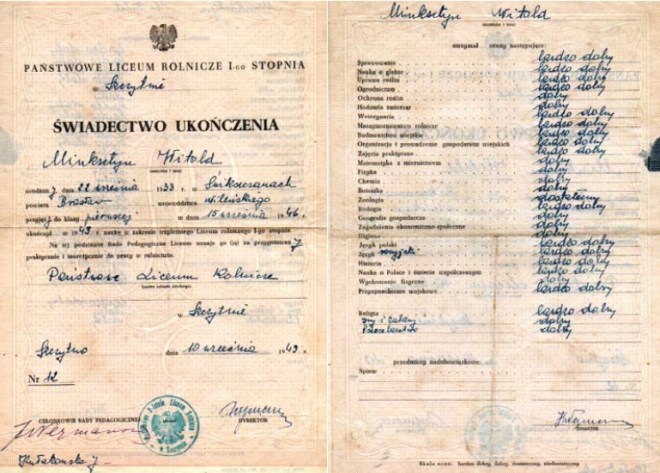 PAŃSTWOWE LICEUM ROLNICZE I-GO STOPNIA
w Szczytnie
ŚWIADECTWO UKOŃCZENIA
Minksztyn Witold
urodzony dnia 22 września 1933 r. w
powiat Brasław województwa wileńskiego
przyjęty do klasy pierwszej w dniu 15 września 1946
ukończył w 1949 r. naukę w zakresie trzyletniego Liceum rolniczego I-go stopnia.
Na tej podstawie Rada Pedagogiczna Liceum uznaje go (ją) za przygotowanego
praktycznie i teoretycznie do pracy w rolnictwie.
Państwowe Liceum Rolnicze
w Szczytnie
Szczytno dnia 10 września 1949
Nr 12
CZŁONKOWIE RADY PEDAGOGICZNEJ
DYREKTOR
Minksztyn Witold
otrzymał oceny następujące:
Sprawowanie bardzo dobry
Nauka o glebie bardzo dobry
Uprawa roślin bardzo dobry
Ogrodnictwo bardzo dobry
Ochrona roślin dobry
Hodowla zwierząt dobry
Weterynaria bardzo dobry
bardzo dobry
Budownictwo wiejskie dobry
Organizacja i prowadzenie gospodarstw wiejskich bardzo dobry
Zajęcia praktyczne bardzo dobry
Matematyka z miernictwem dobry
Fizyka dobry
Chemia dobry
Botanika dobry
Zoologia dostateczny
Biologia bardzo dobry
Geografia gospodarcza dobry
Zagadnienia ekonomiczno-społeczne dobry
Higiena dobry
Język polski bardzo dobry
Język rosyjski dobry
Historia bardzo dobry
Nauka o Polsce i świecie współczesnym bardzo dobry
Wychowanie fizyczne dobry
Przysposobienie wojskowe bardzo dobry
Religia bardzo dobry
dobry
dobry
przedmioty nadobowiązkowe:
Śpiew
DYREKTOR
Skala ocen: bardzo dobry, dobry, dostateczny, niedostateczny